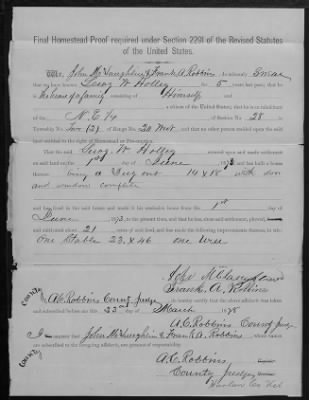 Final Homestead Proof required under Section 2291 of the Revised Statutes
of the United States.
We, John McLaughlin & Frank A Robbins do solemnly Swear
that we have known Leroy W Holley for 5 years last past; that he
is the head of a family consisting of Himself and
a citizen of the United States; that he is an inhabitant
of the N.E ¼ of Section No. 28 in
Township No. Two (2) of Range No. 20 West and that no other person resided upon the said
land entitled to the right of Homestead or Pre-emption.
That the said Leroy W Holley entered upon and made settlement
on said land on the 1st day of June 1873 and has built a house
thereon being a Dug out 14 x 18 with door
and window complete
and has lived in the said house and made it his exclusive home from the 1st day of
June 1873 to the present time, and that he has, since said settlement, plowed,
and about 21 acres of said land, and has made the following improvements thereon, to wit:
One Stable 23 x 46 one well
John McLaughlin
Frank. A. Robbins
I, A.C. Robbins County Judge do hereby certify that the above affidavit was taken
and subscribed before me this 23rd day of March 1878
A.C. Robbins County Judge
I certify that John McLaughlin & Frank A. Robbins whose names are
subscribed to the foregoing affidavit, are persons of respectability.
A.C. Robbins
County Judge
Harlan Co Neb